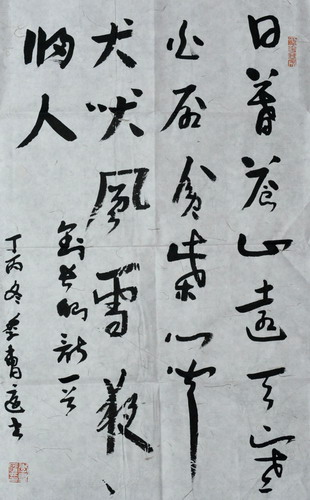 日暮蒼山遠天寒
白屋貧柴門聞
犬吠風雪夜
歸人
劉長卿詩一首
丁丙冬